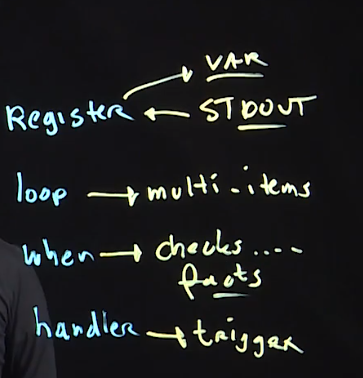 VAR
Register ← STDOUT
loop → multi-items
when → checks....
facts
handler → trigger